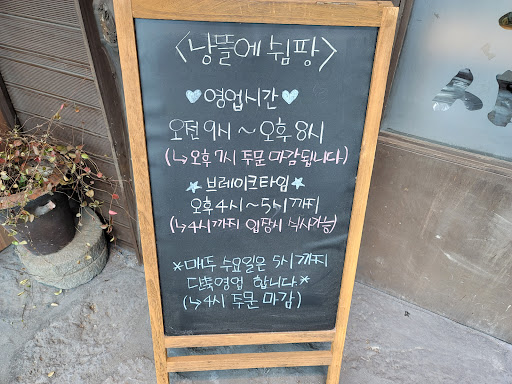 <낭뜰에 쉼팡>
♥영업시간♥
오전 9시 ~ 오후 8시
(↳오후 7시 주문 마감됩니다.)
★브레이크타임★
오후 4시~5시까지
(↳4시까지 입장시 식사가능)
*매주 수요일은 5시까지
단축영업 합니다.*
(↳4시 주문 마감)